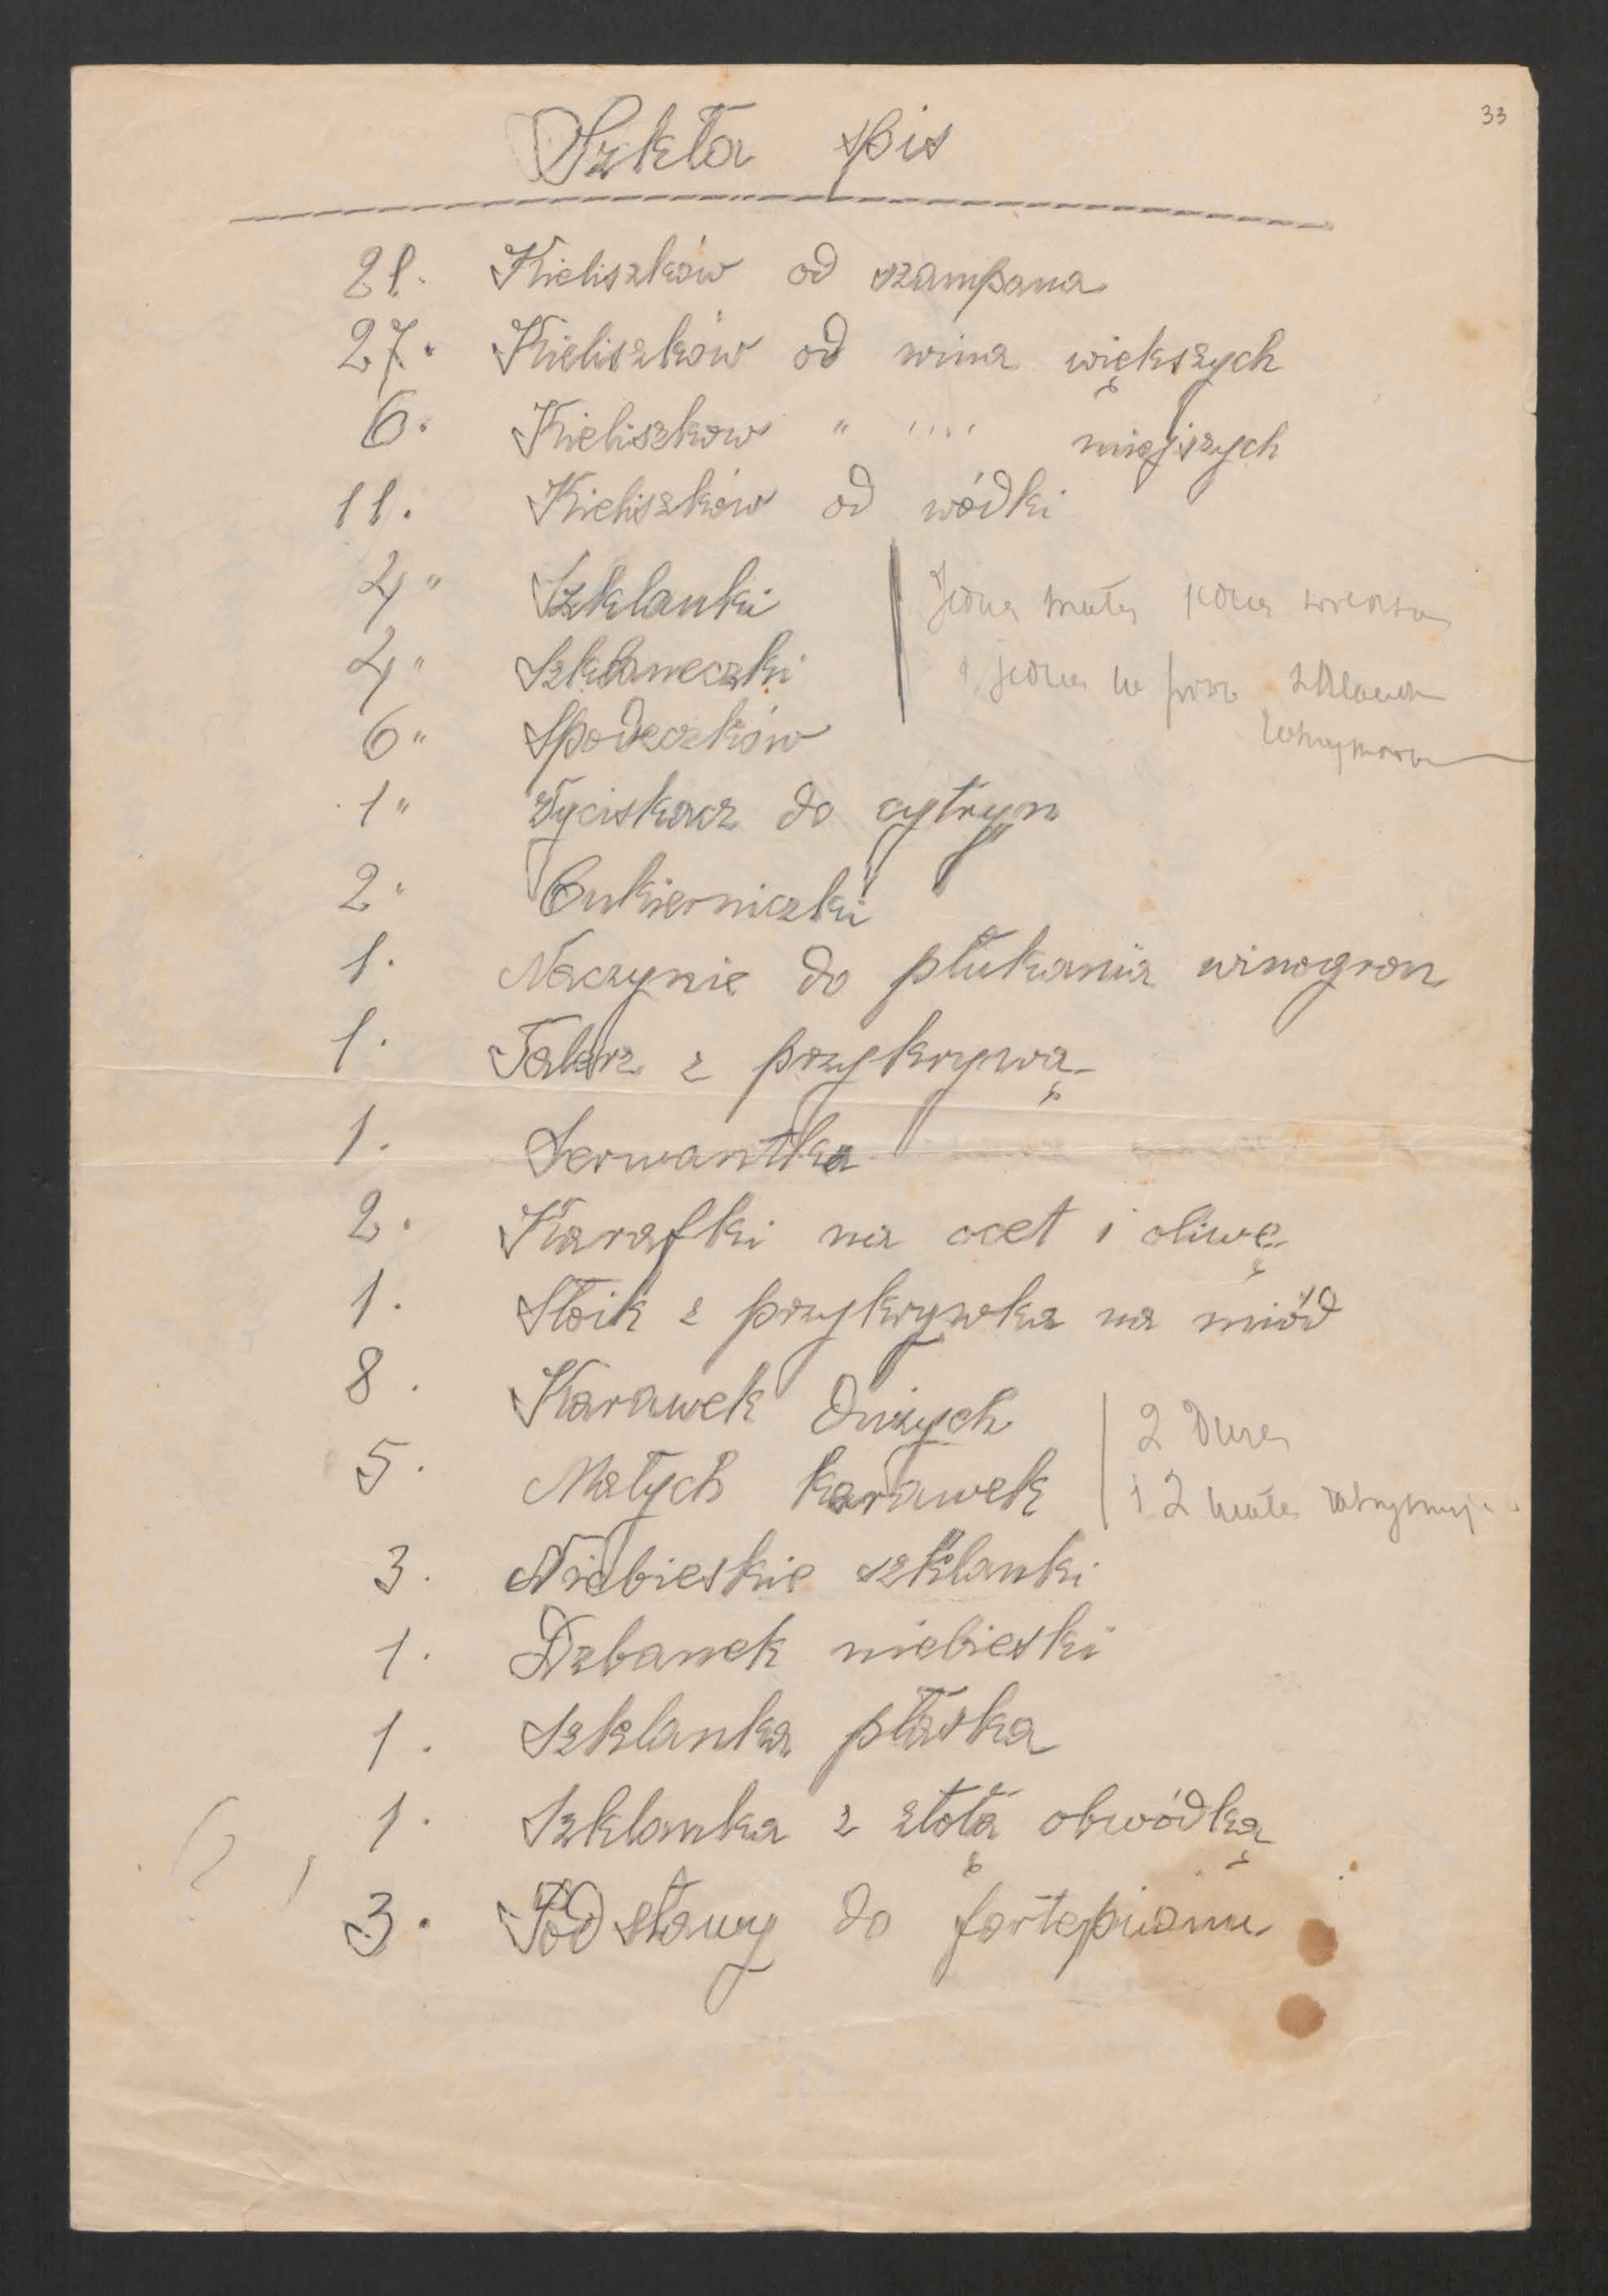 33
Szkła spis
21. Kieliszków od szampana
27. Kieliszków od wina większych
6. Kieliszkow " '''' miejszych
11. Kieliszków od wódki
4" Szklanki
Jedna mała jedna
4" Szklaneczki
i jedna
6" Spodeczków
1" Wyciskacz do cytryn
2" Cukierniczki
1. Naczynie do płukania winogron
1. Talerz z przykrywą
1. Serwantka
2. Karafki na ocet i oliwę
1. Słoik z przykrywka na miód
8. Karawek dużych
2 Duże
5. Małych karawek
i 2 małe zatrzymuję
3. Niebieskie szklanki
1. Dzbanek niebieski
1. Szklanka płaska
1. Szklanka z złotą obwódką
3. Podstawy do fortepianu